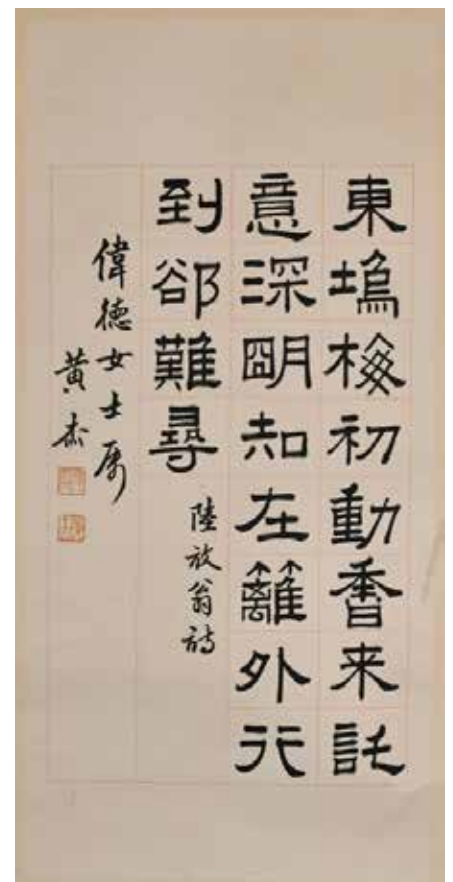 東塢梅初動香来託
意深朙知在籬外行
到郤難尋
陸放翁詩
偉德女士属
黄杰